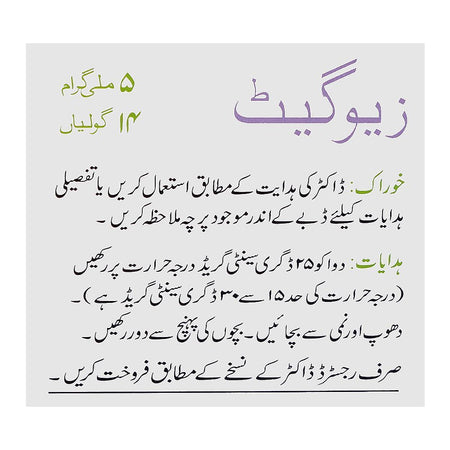 زیوگیٹ
۵ ملی گرام
۱۴ گولیاں
خوراک: ڈاکٹر کی ہدایت کے مطابق استعمال کریں یا تفصیلی
ہدایات کیلئے ڈبے کے اندر موجود پرچہ ملاحظہ کریں ۔
ہدایات: دوا کو ۲۵ ڈگری سینٹی گریڈ درجہ حرارت پر رکھیں
(درجہ حرارت کی حد ۱۵ سے ۳۰ ڈگری سینٹی گریڈ ہے) ۔
دھوپ اور نمی سے بچائیں ۔ بچوں کی پہنچ سے دور رکھیں ۔
صرف رجسٹرڈ ڈاکٹر کے نسخے کے مطابق فروخت کریں ۔